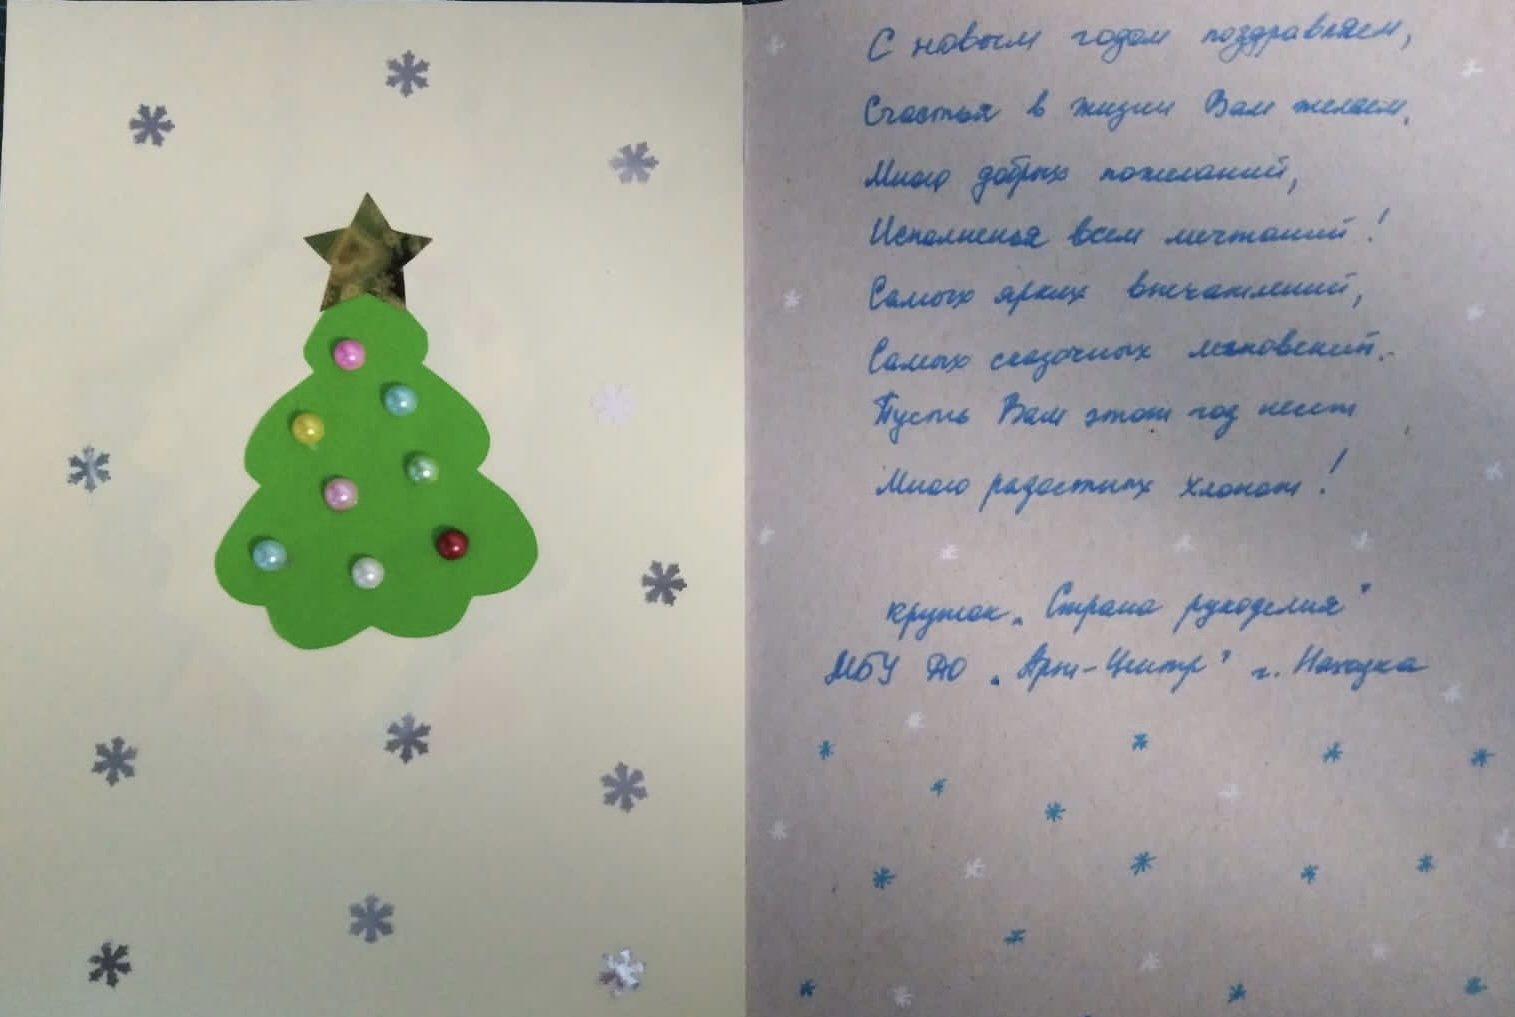 С новым годом поздравляем,
Счастья в жизни Вам желаем.
Много добрых пожеланий,
Исполненья всем мечтаний!
Самых ярких впечатлений,
Самых сказочных мгновений.
Пусть Вам этот год несет
Много радостных хлопот!
кружок „Страна рукоделия"
МБУ ДО „Арт-Центр" г. Находка